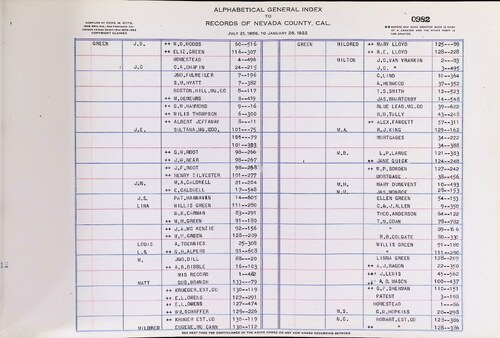 ALPHABETICAL GENERAL INDEX
TO
RECORDS OF NEVADA COUNTY, CAL.
JULY 21, 1856, TO JANUARY 26, 1922
0982
COPYRIGHT CLAIMED
GREEN J.D. ++ W.D. WOODS 60--516 GREEN MILDRED ++ MARY LLOYD 125--99
++ ELIZ. GREEN 116--307 ++ W.E. LLOYD 128--228
HOMESTEAD 4--496 MILTON J.C. VAN VRANKIN 2--83
J.G C.A. CHAPIN 24--215 J.C. " 3--495
JNO. FULWEILER 7--196 C. LIND 10--364
S.M. HYATT 7--382 A. HENWOOD 37--352
BOSTON.HILL.MG.CO 8--117 I.S. SMITH 12--523
++ M. DEMEURS 8--419 JAS. BRANTERBY 14--548
++ G.W. HAMMOND 9--16 BLUE LEAD.MG.CO 39--602
++ WILIS THOMPSON 6--300 R.H. TULLY 43--245
++ ALBERT JEFFARAY 8--11 ++ ALEX. FAWCETT 57--311
J.E. SULTANA.MG.COO. 101--75 M.A. R.J. KING 129--162
101--79 MORTGAGES 34--222
101--383 " 34--388
++ G.W. ROOT 98--266 M.B. L.P. LARUE 121--383
++ J.H. BEAR 98--267 ++ JANE QUICK 124--248
++ J.F. ROOT 98--268 ++ M.P. SORDEN 127--242
++ HENRY SILVESTER 101--277 MORTGAGE 38--456
J.N. M.A. CALDWELL 21--204 M.H. MARY DUNEVENT 10--493
++ E. CALDWELL 17--548 M.J. JAS. MONROE 29--153
J.S. PAT. HANRAVAN 14--605 ELLEN GREEN 54--153
LINA WILLIS GREEN 111--290 C.& J. ALLEN 9--350
W.K. CARMAN 83--291 THEO. ANDERSON 64--122
++ W.W. GREEN 91--180 T.M. GOAN 78--702
++ J.A. MC KENZIE 92--156 " 89--166
++ W.W. GREEN 128--209 R.B. COLGATE 86--330
LOUIS A. TOURNIER 25--308 WILLIS GREEN 91--180
L.S. ++ G.H. ALPERS 91--608 " 111--290
M. JNO. DILL 68--20 LINNA GREEN 128--209
++ A.B. BIBBLE 16--103 ++ A.J. RAGON 22--350
MIS RECORD 1--462 ++ J. LEWIS 45--562
MATT SUB.BRANCH 133--79 ++ A.D. MASON 100--437
++ KRUEGER.EST.CO 130--119 ++ G.F. SHERMAN 110--151
++ E.L. OWENS 127--291 PATENT 3--190
++ E.L. OWENS 127--474 HOMESTEAD 1--86
++ WM. SCHAFFER 129--226 N.S. G.W. HOPKINS 20--298
++ KRUGER EST.CO 130--119 N.C. HOBART.EST.CO 123--386
MILDRED EUGENE.MC CANN 130--112 ++ " 128--336